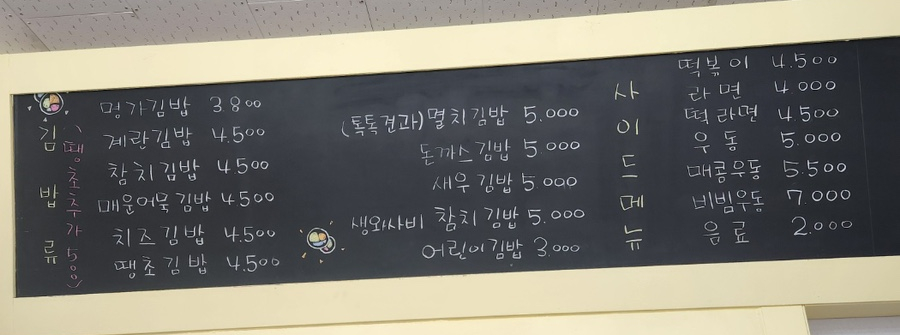 김밥류
(땡초추가 500)
명가김밥 3800
계란김밥 4.500
참치김밥 4.500
매운어묵김밥 4.500
치즈김밥 4.500
땡초김밥 4.500
(톡톡견과)멸치김밥 5.000
돈까스김밥 5.000
새우김밥 5.000
생와사비 참치김밥 5.000
어린이김밥 3.000
사이드메뉴
떡볶이 4.500
라면 4.000
떡라면 4.500
우동 5.000
매콤우동 5.500
비빔우동 7.000
음료 2.000